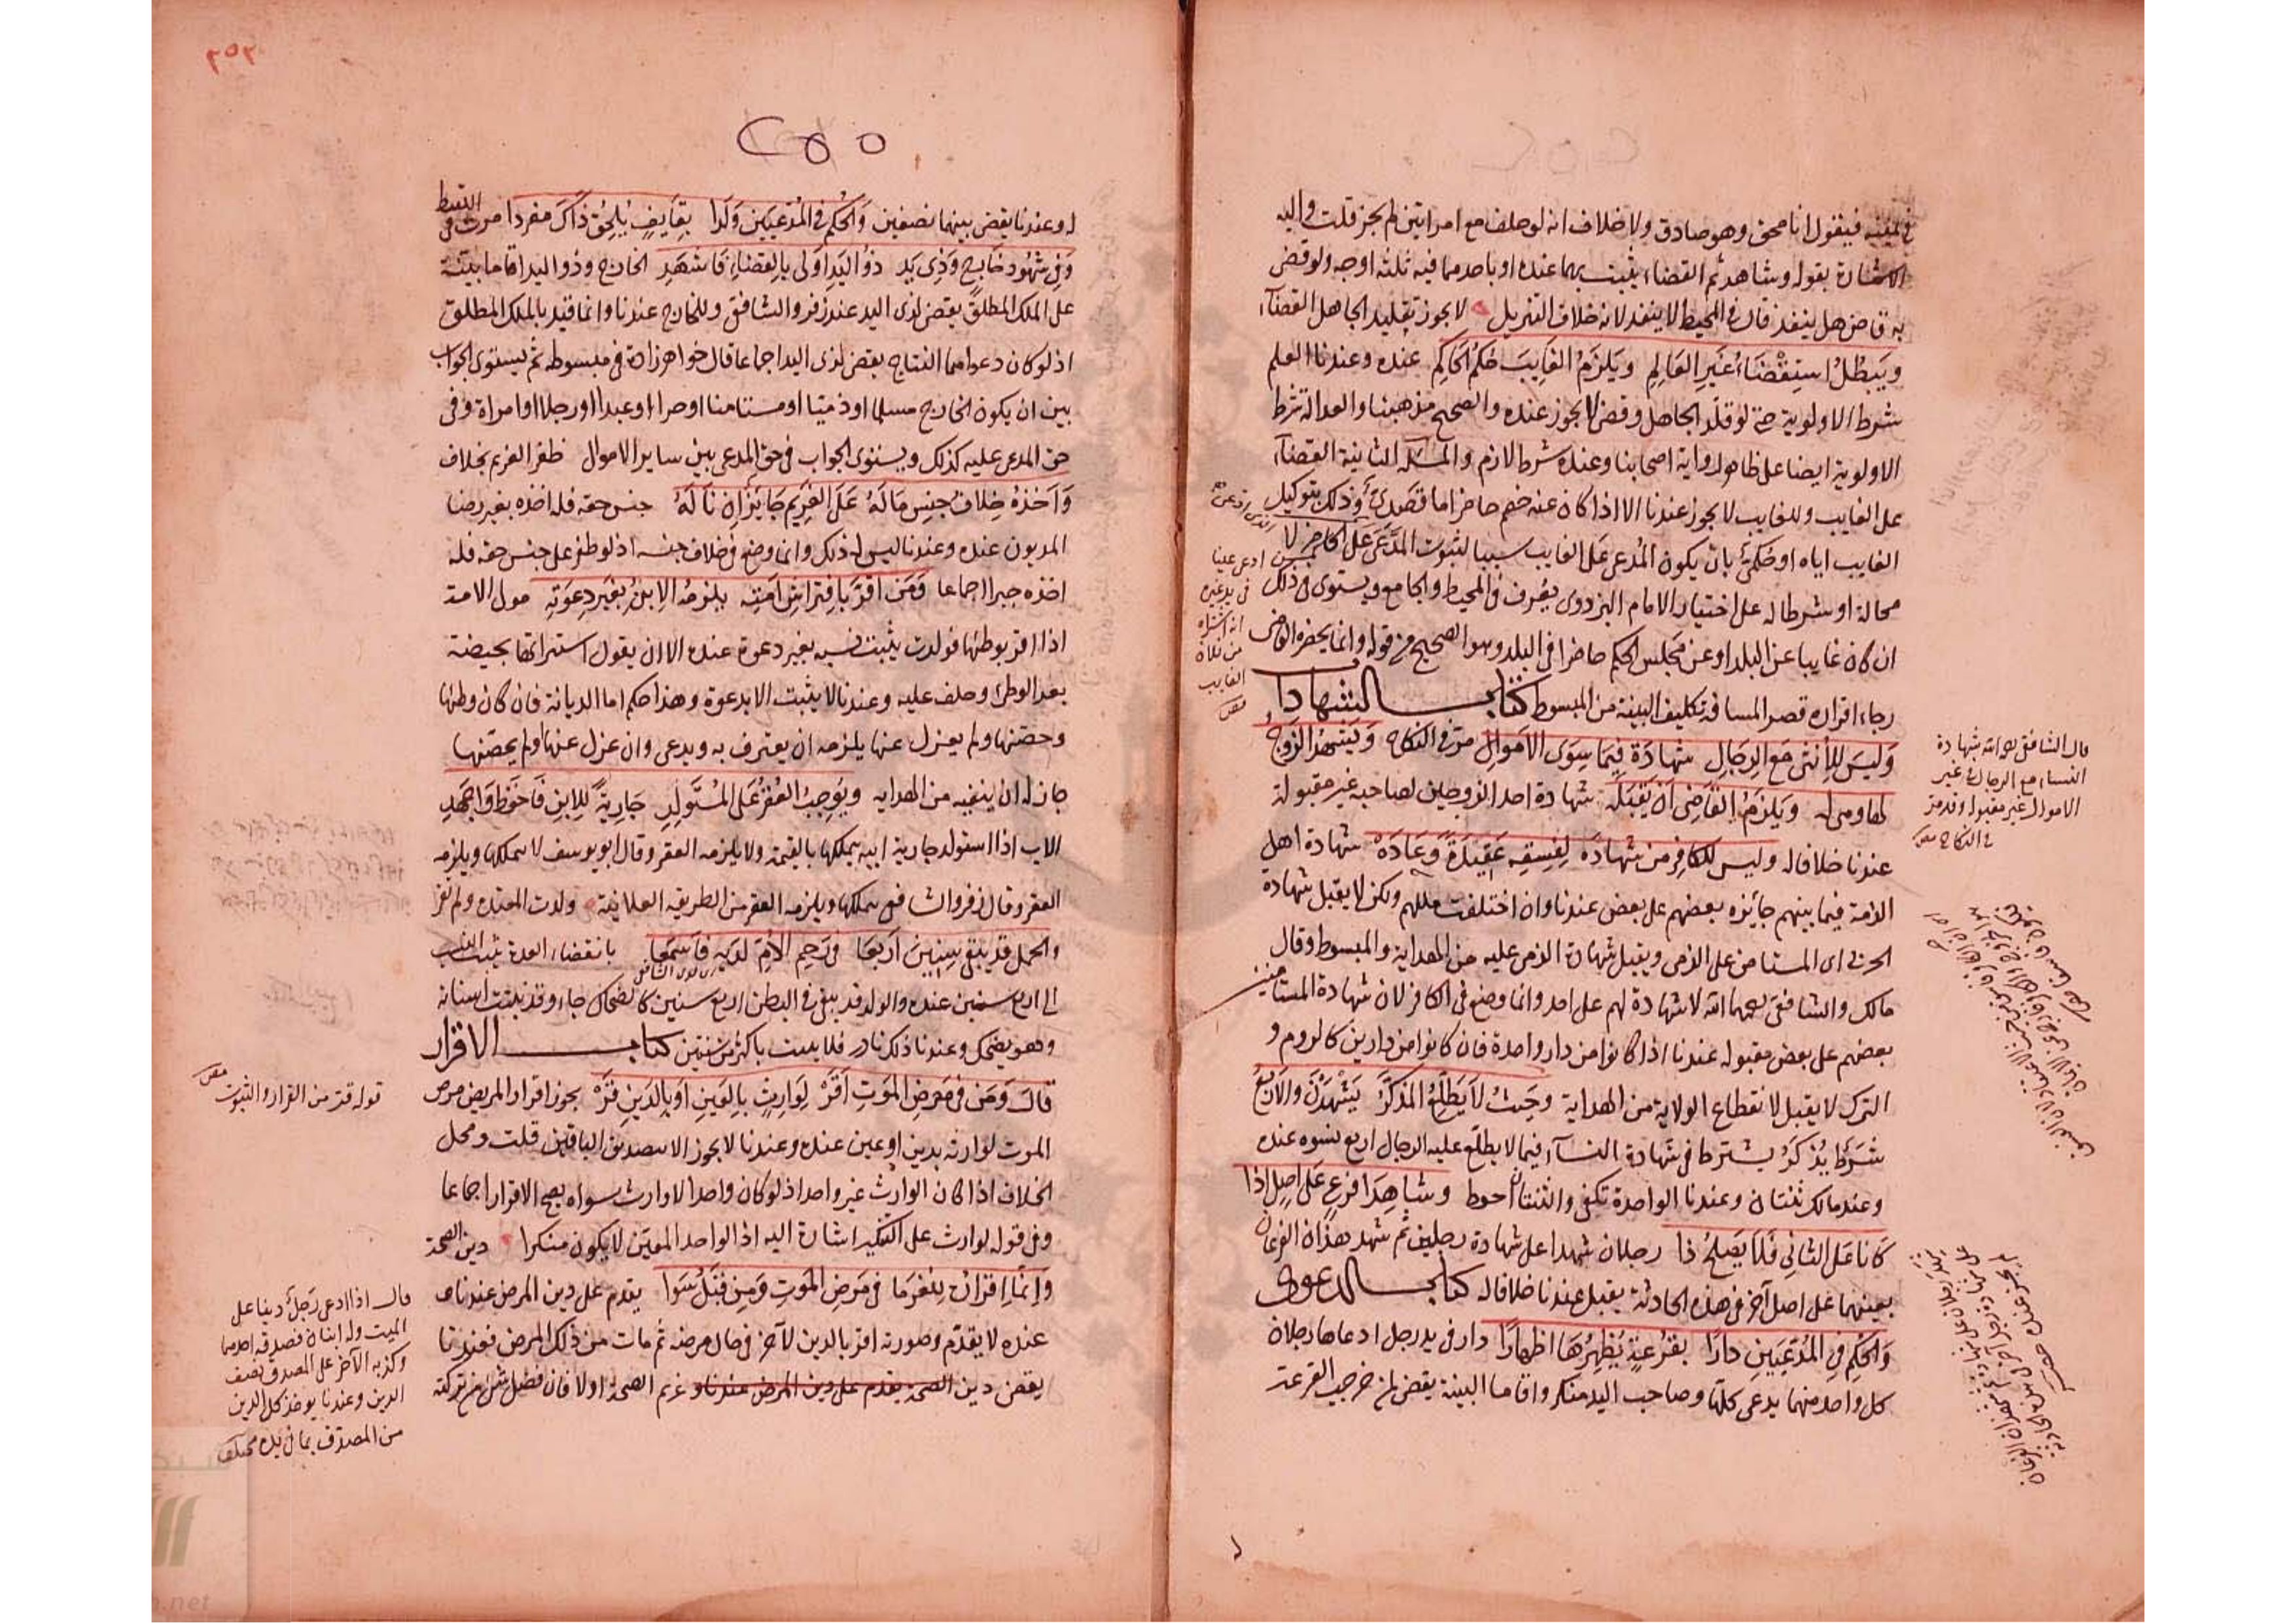 في يمينه فيقول انا محق وهو صادق ولا خلاف انه لو حلف مع امراتين لم يجز قلت واليه
الاشارة بقوله وشاهد ثم القضاء يثبت بهما عنده او باحدهما فيه ثلثه اوجه ولو قضى
به قاض هل ينفذ قال في المحيط لا ينفذ لانه خلاف التنزيل لا يجوز تقليد الجاهل القضاء
ويبطل استقضاء غير العالم ويلزم الغايب حكم الحاكم عنده وعندنا العلم
شرط الاولوية حتى لو قلد الجاهل وقضى لا يجوز عنده والصحيح مذهبنا والعدالة شرط
الاولوية ايضا على ظاهر رواية اصحابنا وعنده شرط لازم والمسئلة الثانية القضاء
على الغايب وللغايب لا يجوز عندنا الا اذا كان عنه خصم حاضر اما قصدي وذلك بتوكيل
الغايب اياه او حكمي بان يكون المدعى على الغايب سببا لثبوت المدعى على الحاضر لا
محالة او شرطا له على اختيار الامام البزدوي يعرف في المحيط والجامع ويستوى في ذلك
ان كان غايبا عن البلد او عن مجلس الحكم حاضرا في البلد وهو الصحيح من قوله وانما يحضره القاضى
رجاء اقراره قصر المسافة تكليف البينة من المبسوط كتاب الشهادا
وليس للأنثى مع الرجال شهادة فيما سوى الاموال مر في النكاح ويشهد الزوج
لها ومن له ويلزم القاضى ان يقبله شهادة احد الزوجين لصاحبه غير مقبولة
عندنا خلافا له وليس للكافر من شهادة لفسقه عقيدة وعادة شهادة اهل
الذمة فيما بينهم جائزه بعضهم على بعض عندنا وان اختلفت مللهم ولكن لا يقبل شهادة
الحربي اى المستامن على الذمى ويقبل شهادة الذمى عليه من الهداية والمبسوط وقال
مالك والشافعى رحمهما الله لا شهادة لهم على احد وانما وضع في الكافر لان شهادة المستامنين
بعضهم على بعض مقبوله عندنا اذا كانوا من دار واحدة فان كانوا من دارين كالروم و
الترك لا يقبل لانقطاع الولاية من الهداية وحيث لا يطلع المذكر يشهدن والاربع
شرط يذكر يشترط في شهادة النساء فيما لا يطلع عليه الرجال اربع نسوه عنده
وعند مالك ثنتان وعندنا الواحدة تكفى والثنتان احوط وشاهدا فرع على اصل اذا
كانا على الثانى فلا يصلح ذا رجلان شهدا على شهادة رجلين ثم شهد هذان الفرعان
بعينهما على اصل آخر في هذه الحادثة يقبل عندنا خلافا له كتاب الدعوى
والحكم في المدعيين دارا بقرعة يظهرها اظهارا دار في يد رجل ادعاها رجلان
كل واحد منهما يدعى كلها وصاحب اليد منكر واقاما البينة يقضى لمن خرجب القرعة
قال الشافعى رحمه الله شهادة
النساء مع الرجال في غير
الاموال غير مقبولة وقد مر
في النكاح
ادعى علينا
انه اشتراه
من فلان
الغايب
٢٥٢
٢٥٥
له وعندنا يقضى بينهما نصفين والحكم في المدعيين ولدا بقايف يلحق ذاك مفردا مرت في اللقيط
وفي شهود خارج وذي يد ذو اليد اولى بالقضاء فاشهد الخارج وذو اليد اقاما بينة
على الملك المطلق يقضى لذى اليد عند زفر والشافعى وللخارج عندنا وانما قيد بالملك المطلق
اذ لو كان دعواهما النتاج يقضى لذى اليد اجماعا قال خواهر زاده في مبسوطه ثم يستوى الجواب
بين ان يكون الخارج مسلما او ذميا او مستامنا او حرا او عبدا او رجلا او امراة وفى
حق المدعى عليه كذلك ويستوى الجواب في حق المدعى بين ساير الاموال ظفر الغريم بخلاف
واخذه خلاف جنس ماله على الغريم جايز ان ناله جنس حقه فله اخذه بغير رضا
المديون عنده وعندنا ليس له ذلك وانما وضع في خلاف جنسه اذ لو ظفر على جنس حقه فله
اخذه جبرا اجماعا ومن اقر بافتراش امته يلزمه الابن بغير دعوته مولى الامة
اذا اقر بوطئها فولدت يثبت نسبه بغير دعوة عنده الا ان يقول استبراتها بحيضة
بعد الوطئ وحلف عليه وعندنا لا يثبت الا بدعوة وهذا حكم اما الديانة فان كان وطئها
وحصنها ولم يعزل عنها يلزمه ان يعترف به ويدعى وان عزل عنها ولم يحصنها
جاز له ان ينفيه من الهداية ويوجب العقر على المستولد جارية للابن فاحفظ واجهد
الاب اذا استولد جارية ابنه يتملكها بالقيمة ولا يلزمه العقر وقال ابو يوسف لا يتملكها ويلزمه
العقر وقال زفر والشافعى يتملكها ويلزمه العقر من الطريقه العلائية ولدت المعتدة ولم تقر
والحمل قد يبقى سنين اربعا في رحم الام لديه فاسمعا بانقضاء العدة يثبت النسب
الى اربع سنين عنده والولد قد يبقى في البطن اربع سنين كالضحاك جاء وقد نبتت اسنانه
وهو يضحك وعندنا ذلك نادر فلا يثبت باكثر من سنتين كتاب الاقرار
قال ومن في مرض الموت اقر لوارث بالعين او بالدين قر يجوز اقرار المريض مرض
الموت لوارثه بدين او عين عنده وعندنا لا يجوز الا بتصديق الباقين قلت ومحل
الخلاف اذا كان الوارث غير واحد اذ لو كان واحدا لا وارث سواه يصح الاقرار اجماعا
وفى قوله لوارث على التنكير اشارة اليه اذ الواحد المعين لا يكون منكرا دين الصحة
وانما اقراره للغرما في مرض الموت ومن قبل سوا يقدم على دين المرض عندنا و
عنده لا يقدم وصورته اقر بالدين لآخر في حال مرضه ثم مات من ذلك المرض فعندنا
يقضى دين الصحة يقدم على دين المرض عندنا و غريم الصحة اولا فان فضل شئ من تركته
قوله قر من القرار والثبوت
قال اذا ادعى رجل دينا على
الميت وله ابنان فصدقه احدهما
وكذبه الآخر على المصدق نصف
الدين وعندنا يوخذ كل الدين
من المصدق بما في يده